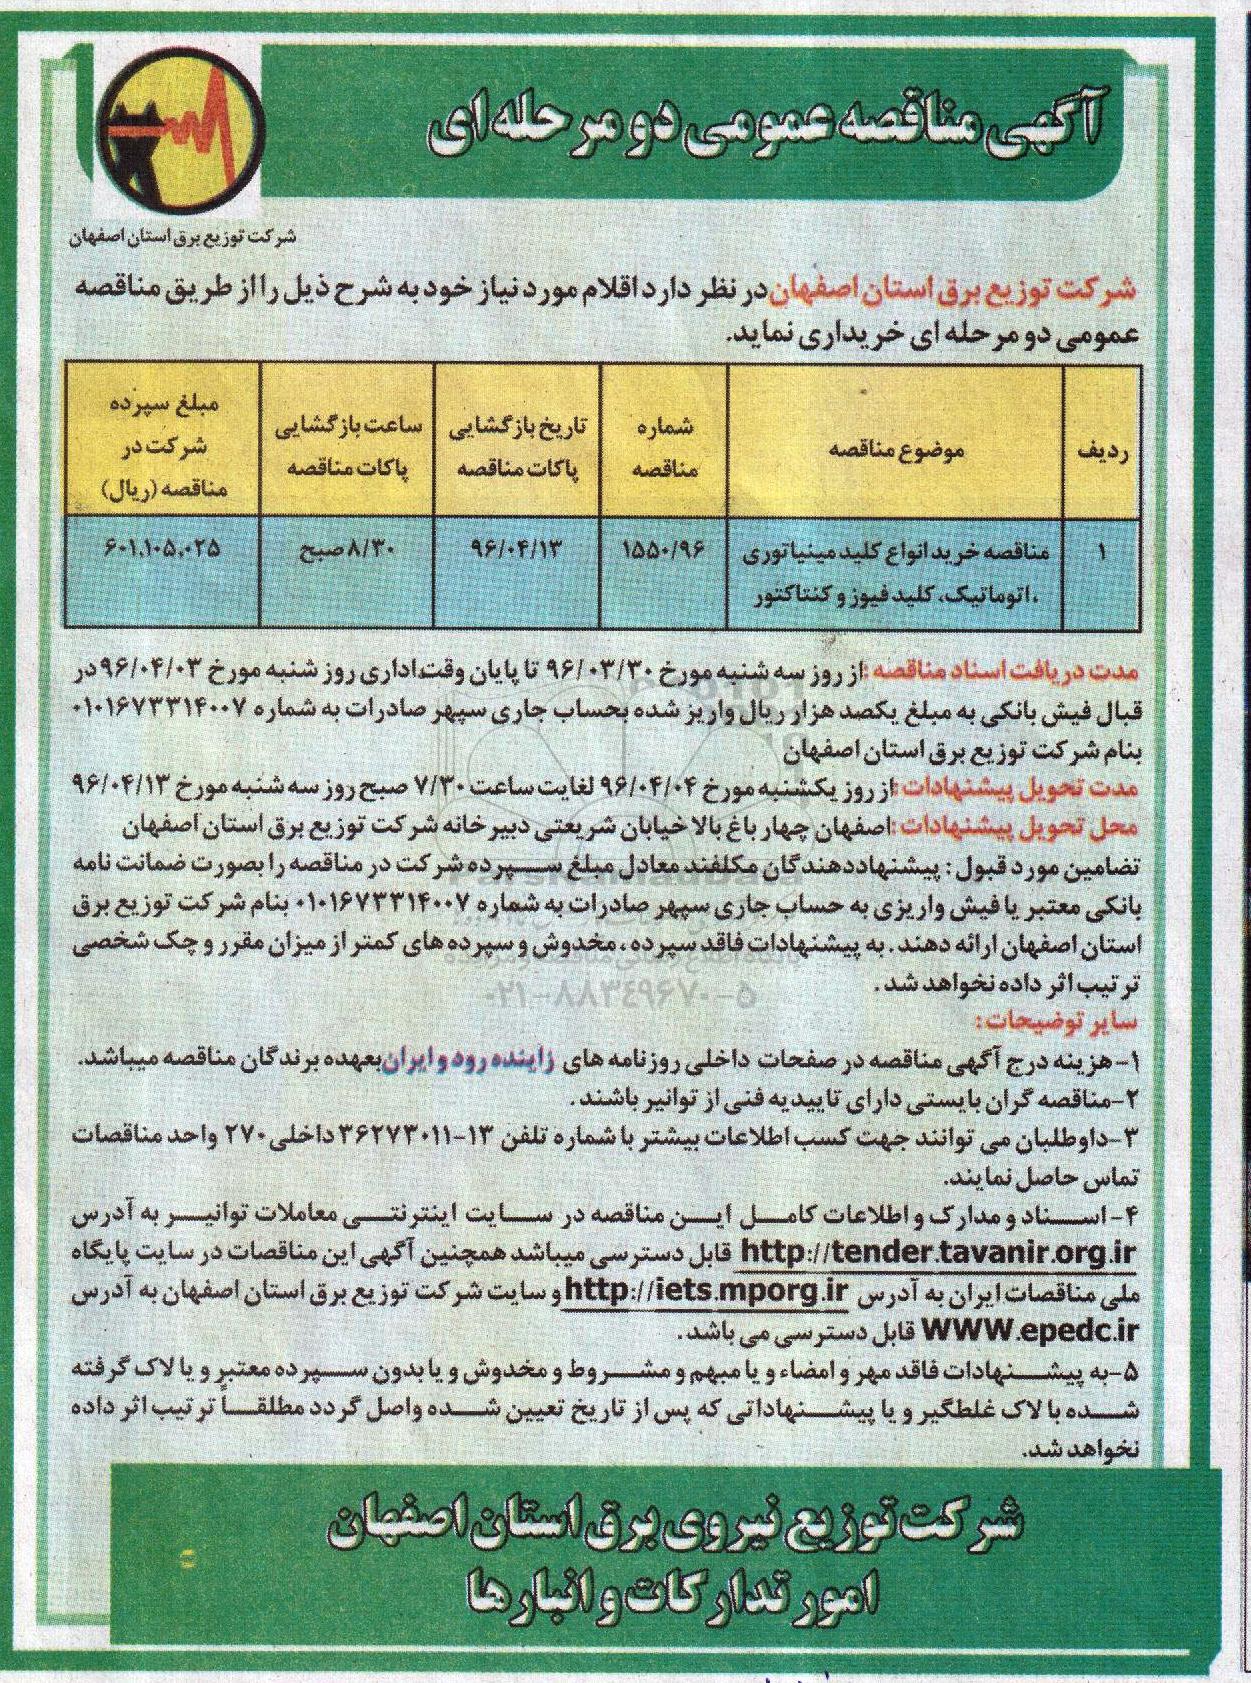 آگهی مناقصه عمومی دو مرحله ای
شرکت توزیع برق استان اصفهان
شرکت توزیع برق استان اصفهان در نظر دارد اقلام مورد نیاز خود به شرح ذیل را از طریق مناقصه
عمومی دو مرحله ای خریداری نماید.
ردیف	موضوع مناقصه	شماره مناقصه	تاریخ بازگشایی پاکات مناقصه	ساعت بازگشایی پاکات مناقصه	مبلغ سپرده شرکت در مناقصه (ریال)
۱	مناقصه خرید انواع کلید مینیاتوری ،اتوماتیک، کلید فیوز و کنتاکتور	۱۵۵۰/۹۶	۹۶/۰۴/۱۳	۸/۳۰ صبح	۶۰۱.۱۰۵.۰۲۵
مدت دریافت اسناد مناقصه :از روز سه شنبه مورخ ۹۶/۰۳/۳۰ تا پایان وقت اداری روز شنبه مورخ ۹۶/۰۴/۰۳ در
قبال فیش بانکی به مبلغ یکصد هزار ریال واریز شده بحساب جاری سپهر صادرات به شماره ۰۱۰۱۶۷۳۳۱۴۰۰۷
بنام شرکت توزیع برق استان اصفهان
مدت تحویل پیشنهادات :از روز یکشنبه مورخ ۹۶/۰۴/۰۴ لغایت ساعت ۷/۳۰ صبح روز سه شنبه مورخ ۹۶/۰۴/۱۳
محل تحویل پیشنهادات :اصفهان چهار باغ بالا خیابان شریعتی دبیرخانه شرکت توزیع برق استان اصفهان
تضامین مورد قبول : پیشنهاددهندگان مکلفند معادل مبلغ سپرده شرکت در مناقصه را بصورت ضمانت نامه
بانکی معتبر یا فیش واریزی به حساب جاری سپهر صادرات به شماره ۰۱۰۱۶۷۳۳۱۴۰۰۷ بنام شرکت توزیع برق
استان اصفهان ارائه دهند. به پیشنهادات فاقد سپرده ،مخدوش و سپرده های کمتر از میزان مقرر و چک شخصی
ترتیب اثر داده نخواهد شد .
۰۲۱-۸۸۳۴۹۶۷۰-۵
سایر توضیحات:
۱-هزینه درج آگهی مناقصه در صفحات داخلی روزنامه های زاینده رود و ایران بعهده برندگان مناقصه میباشد.
۲-مناقصه گران بایستی دارای تاییدیه فنی از توانیر باشند .
۳-داوطلبان می توانند جهت کسب اطلاعات بیشتر با شماره تلفن ۱۳-۳۶۲۷۳۰۱۱ داخلی ۲۷۰ واحد مناقصات
تماس حاصل نمایند.
۴-اسناد و مدارک و اطلاعات کامل این مناقصه در سایت اینترنتی معاملات توانیر به آدرس
http://tender.tavanir.org.ir قابل دسترسی میباشد همچنین آگهی این مناقصات در سایت پایگاه
ملی مناقصات ایران به آدرس http://iets.mporg.ir و سایت شرکت توزیع برق استان اصفهان به آدرس
WWW.epedc.ir قابل دسترسی می باشد .
۵-به پیشنهادات فاقد مهر و امضاء و یا مبهم و مشروط و مخدوش و یا بدون سپرده معتبر و یا لاک گرفته
شده با لاک غلطگیر و یا پیشنهاداتی که پس از تاریخ تعیین شده واصل گردد مطلقاً ترتیب اثر داده
نخواهد شد.
شرکت توزیع نیروی برق استان اصفهان
امور تدارکات و انبارها